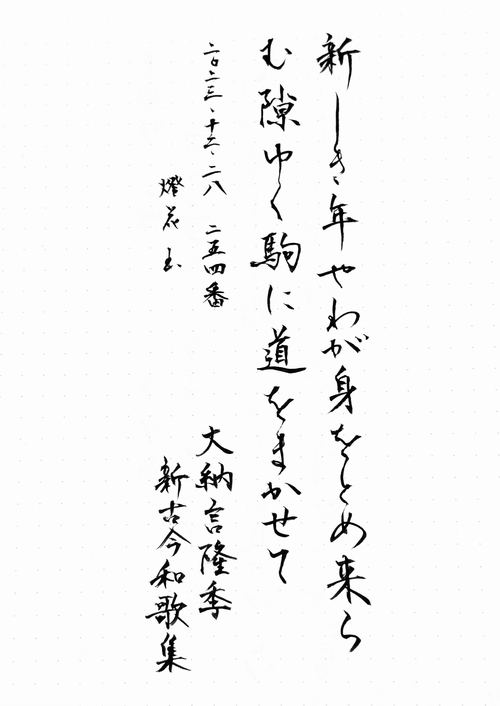 新しき年やわが身をとめ来ら
む隙ゆく駒に道をまかせて
大納言隆季
新古今和歌集
二〇二三、十二、二八 二五四番
燈花